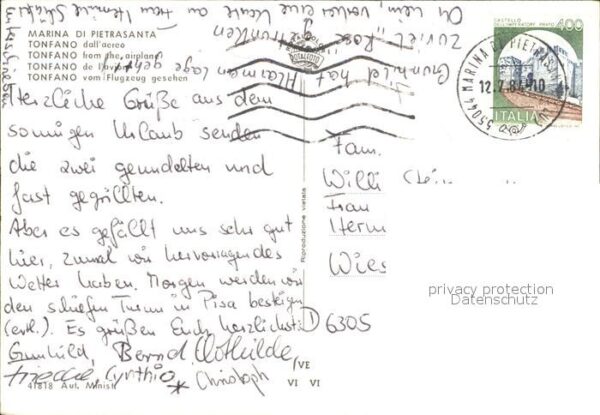 MARINA DI PIETRASANTA
TONFANO dall'aereo
TONFANO from the airplane
TONFANO de l'avion
TONFANO vom Flugzeug gesehen
Herzliche Grüße aus dem
sonnigen Urlaub senden
die zwei geundelten und
fast gegrillten.
Aber es gefällt uns sehr gut
hier, zumal wir hervorragendes
Wetter haben. Morgen werden wir
den schiefen Turm in Pisa besteigen
(evtl.). Es grüßen Euch herzlichst:
Gunhild, Bernd, Clothilde,
Cynthia * Christoph
41818 Aut. Minist.
/VE
VI VI
Riproduzione vietata
CASTELLO
DELL'IMPERATORE PRATO
400
ITALIA
55044 MARINA DI PIETRASANTA
12.7.84-10
Fam.
Willi
Frau
Herm
Wies
privacy protection
Datenschutz
① 6305
Gunhild hat
zuviel "Rosé" getrunken